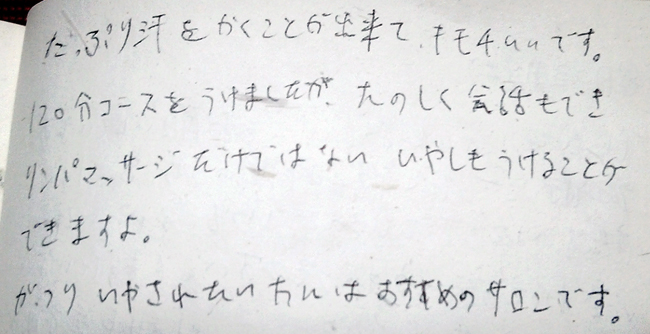 たっぷり汗をかくことが出来て、キモチいいです。
120分コースをうけましたが、たのしく会話もでき
リンパマッサージだけではない いやしもうけることが
できますよ。
がっつり いやされたい方には おすすめのサロンです。